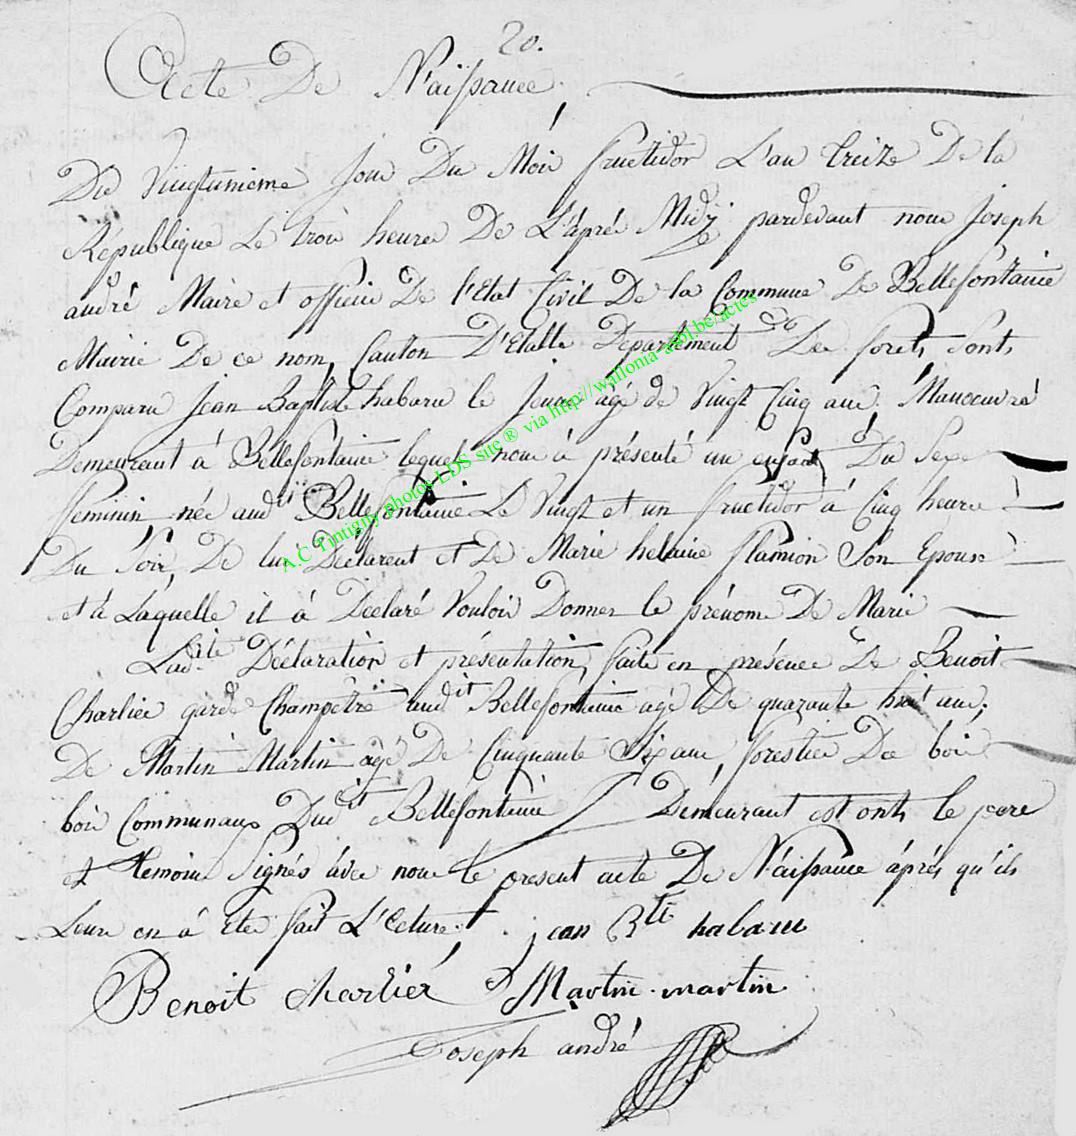 20.
Acte De Naissance
Du Vingtunieme Jour Du Mois fructidor L'an treize De la
République Le trois heures De L'après Midÿ pardevant nous Joseph
andré Maire et officier De l'Etat Civil De la Commune De Bellefontaine
Mairie De ce nom, Canton D'Etalle Departement Des forets, sonts
Comparu Jean Baptiste habaru le Jeune âgé de Vingt Cinq ans, Manoeuvre
Demeurant à Bellefontaine lequel nous à présenté un enfant Du Sexe
feminin, née aud.it Bellefontaine Le Vingt et un fructidor à Cinq heures
Du Soir, De lui Déclarent et De Marie helaine flamion Son Epouse
et à Laquelle il à Déclaré Vouloir Donner le prénoms De Marie
Lad.ite Déclaration et présentation, faite en présence De Benoit
Charlier garde Champetre aud.it Bellefontaine agé De quarante huit ans;
De Martin Martin agé De Cinquante Six ans, forestier Des bois
bois Communaux Dud.it Bellefontaine Demeurant est onts le pere
et temoins Signés avec nous le present acte De Naissance áprés qu'ils
Leure en à Eté fait L'Ecture.   jean Bte habaru
Benoit charlier   Martin martin
Joseph andré
A.C Tintigny photos LDS site ® via http://wallonia-asbl.be/actes